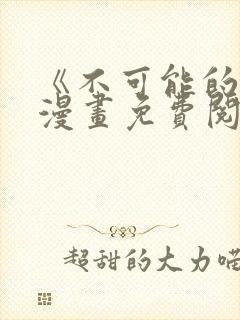 《不可能的
漫畫免費閱
超甜的大力喵